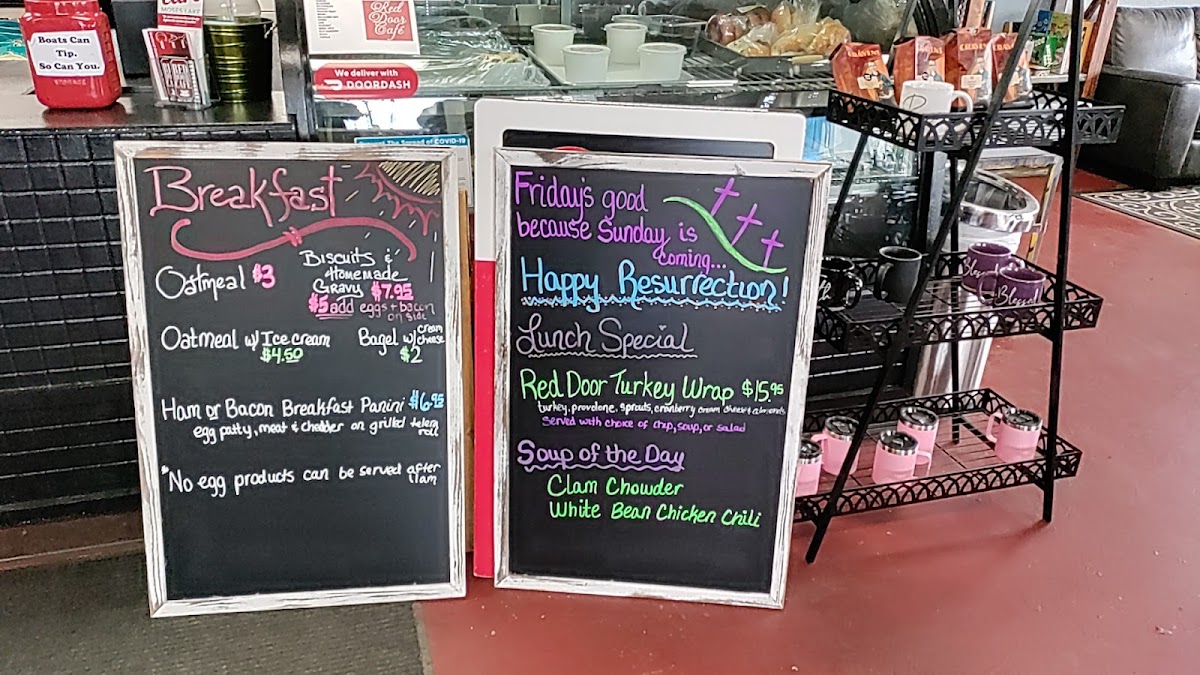 Boats Can
Tip,
So Can You.
Red
Door
Café
We deliver with
DOORDASH
The Spread of COVID-19
Breakfast
Oatmeal $3
Biscuits &
Homemade
Gravy $7.95
$5 add eggs + bacon
on side
Oatmeal w/ Ice cream
$4.50
Bagel w/ cream
cheese
$2
Ham or Bacon Breakfast Panini $6.95
egg patty, meat & cheddar on grilled telera
roll
*No egg products can be served after
11am
Friday's good
because Sunday is
coming...
Happy Resurrection!
Lunch Special
Red Door Turkey Wrap $15.95
turkey, provolone, sprouts, cranberry cream cheese & almonds
Served with choice of chip, soup, or salad
Soup of the Day
Clam Chowder
White Bean Chicken Chili
CRAVENS
Blessed
Blessed